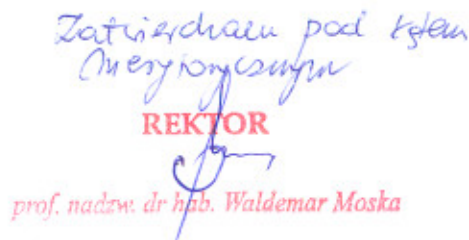 Zatwierdzam pod kątem
merytorycznym
REKTOR
prof. nadzw. dr hab. Waldemar Moska